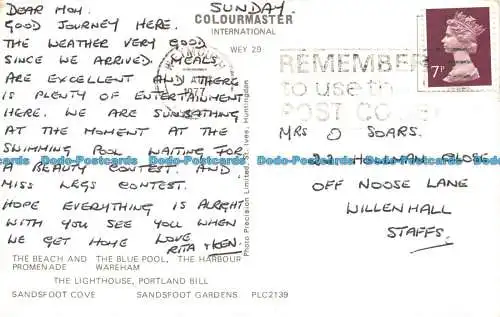 SUNDAY.
DEAR MOM.
GOOD JOURNEY HERE.
THE WEATHER VERY GOOD
SINCE WE ARRIVED. MEALS
ARE EXCELLENT AND THERE
IS PLENTY OF ENTERTAINMENT
HERE. WE ARE SUNBATHING
AT THE MOMENT AT THE
SWIMMING POOL WAITING FOR
A BEAUTY CONTEST. AND
MISS LEGS CONTEST.
HOPE EVERYTHING IS ALRIGHT
WITH YOU SEE YOU WHEN
WE GET HOME LOVE
RITA & KEN.
THE BEACH AND THE BLUE POOL, THE HARBOUR
PROMENADE WAREHAM
THE LIGHTHOUSE, PORTLAND BILL
SANDSFOOT COVE SANDSFOOT GARDENS PLC2139
COLOURMASTER
INTERNATIONAL
WEY 29
Photo Precision Limited, St. Ives, Huntingdon
1977
REMEMBER
to use the
POST CODE
7P
MRS O SOARS.
22 HOLLMAN CLOSE
OFF NOOSE LANE
WILLENHALL
STAFFS.
Dodo-Postcards Dodo-Postcards Dodo-Postcards Dodo-Postcards Dodo-Postcards